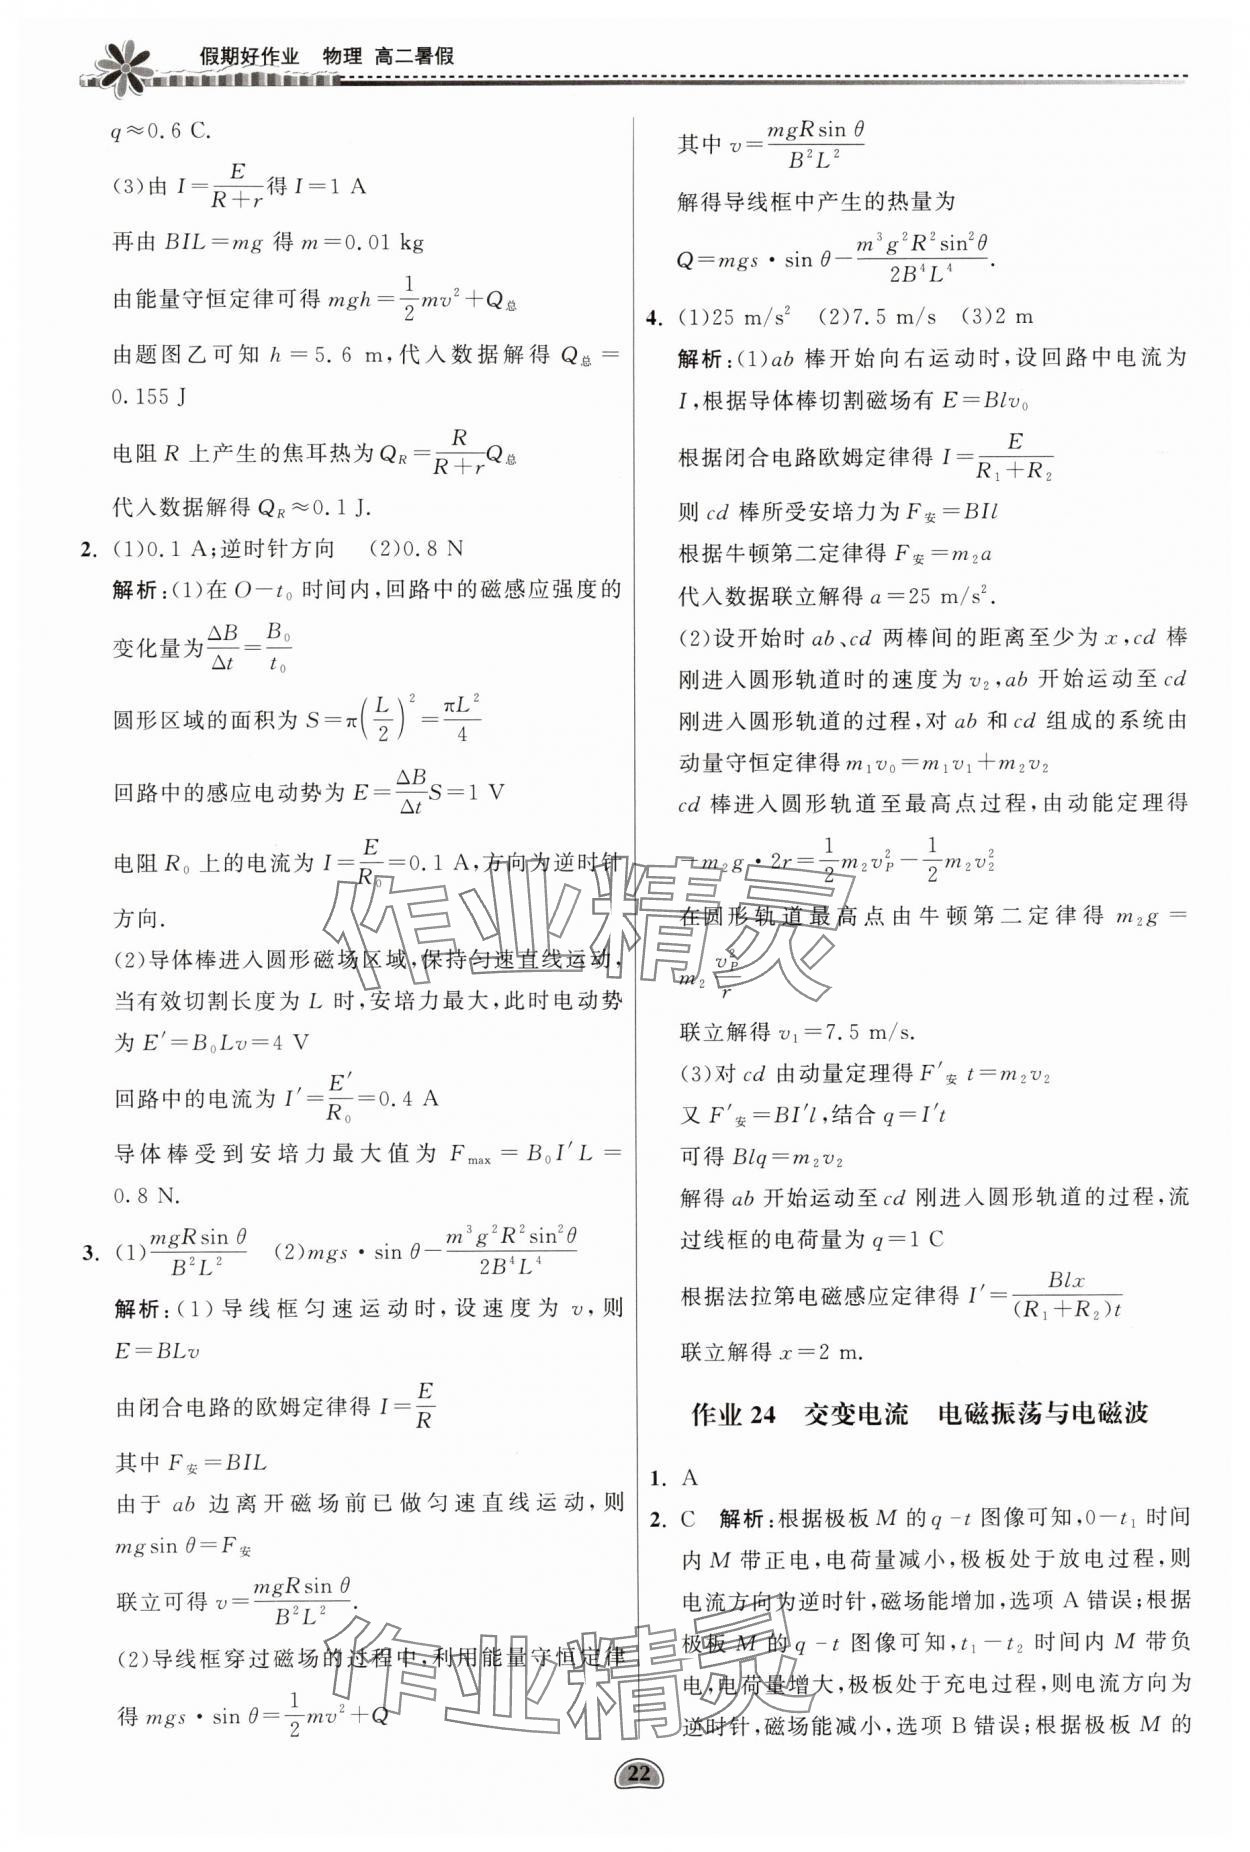 假期好作业 物理 高二暑假
q≈0.6 C.
(3)由 I=E/(R+r)得 I=1 A
再由 BIL=mg 得 m=0.01 kg
由能量守恒定律可得 mgh=1/2mv²+Q总
由题图乙可知 h=5.6 m,代入数据解得 Q总=
0.155 J
电阻 R 上产生的焦耳热为 Q_R=R/(R+r)Q总
代入数据解得 Q_R≈0.1 J.
2. (1)0.1 A;逆时针方向 (2)0.8 N
解析:(1)在 O-t₀ 时间内,回路中的磁感应强度的
变化量为ΔB/Δt=B₀/t₀
圆形区域的面积为 S=π(L/2)²=πL²/4
回路中的感应电动势为 E=ΔB/Δt S=1 V
电阻 R₀ 上的电流为 I=E/R₀=0.1 A,方向为逆时针
方向.
(2)导体棒进入圆形磁场区域,保持匀速直线运动,
当有效切割长度为 L 时,安培力最大,此时电动势
为 E′=B₀Lv=4 V
回路中的电流为 I′=E′/R₀=0.4 A
导体棒受到安培力最大值为 F_max=B₀I′L=
0.8 N.
3. (1)mgRsin θ/B²L² (2)mgs·sin θ-m³g²R²sin²θ/2B⁴L⁴
解析:(1)导线框匀速运动时,设速度为 v,则
E=BLv
由闭合电路的欧姆定律得 I=E/R
其中 F安=BIL
由于 ab 边离开磁场前已做匀速直线运动,则
mgsin θ=F安
联立可得 v=mgRsin θ/B²L².
(2)导线框穿过磁场的过程中,利用能量守恒定律
得 mgs·sin θ=1/2mv²+Q
其中 v=mgRsin θ/B²L²
解得导线框中产生的热量为
Q=mgs·sin θ-m³g²R²sin²θ/2B⁴L⁴.
4. (1)25 m/s² (2)7.5 m/s (3)2 m
解析:(1)ab 棒开始向右运动时,设回路中电流为
I,根据导体棒切割磁场有 E=Blv₀
根据闭合电路欧姆定律得 I=E/(R₁+R₂)
则 cd 棒所受安培力为 F安=BIl
根据牛顿第二定律得 F安=m₂a
代入数据联立解得 a=25 m/s².
(2)设开始时 ab、cd 两棒间的距离至少为 x,cd 棒
刚进入圆形轨道时的速度为 v₂,ab 开始运动至 cd
刚进入圆形轨道的过程,对 ab 和 cd 组成的系统由
动量守恒定律得 m₁v₀=m₁v₁+m₂v₂
cd 棒进入圆形轨道至最高点过程,由动能定理得
-m₂g·2r=1/2m₂v_P²-1/2m₂v₂²
在圆形轨道最高点由牛顿第二定律得 m₂g=
m₂v_P²/r
联立解得 v₁=7.5 m/s.
(3)对 cd 由动量定理得 F′安t=m₂v₂
又 F′安=BI′l,结合 q=I′t
可得 Blq=m₂v₂
解得 ab 开始运动至 cd 刚进入圆形轨道的过程,流
过线框的电荷量为 q=1 C
根据法拉第电磁感应定律得 I′=Blx/(R₁+R₂)t
联立解得 x=2 m.
作业 24 交变电流 电磁振荡与电磁波
1. A
2. C 解析:根据极板 M 的 q-t 图像可知,0-t₁ 时间
内 M 带正电,电荷量减小,极板处于放电过程,则
电流方向为逆时针,磁场能增加,选项 A 错误;根据
极板 M 的 q-t 图像可知,t₁-t₂ 时间内 M 带负
电,电荷量增大,极板处于充电过程,则电流方向为
逆时针,磁场能减小,选项 B 错误;根据极板 M 的
22
作业精灵
作业精灵